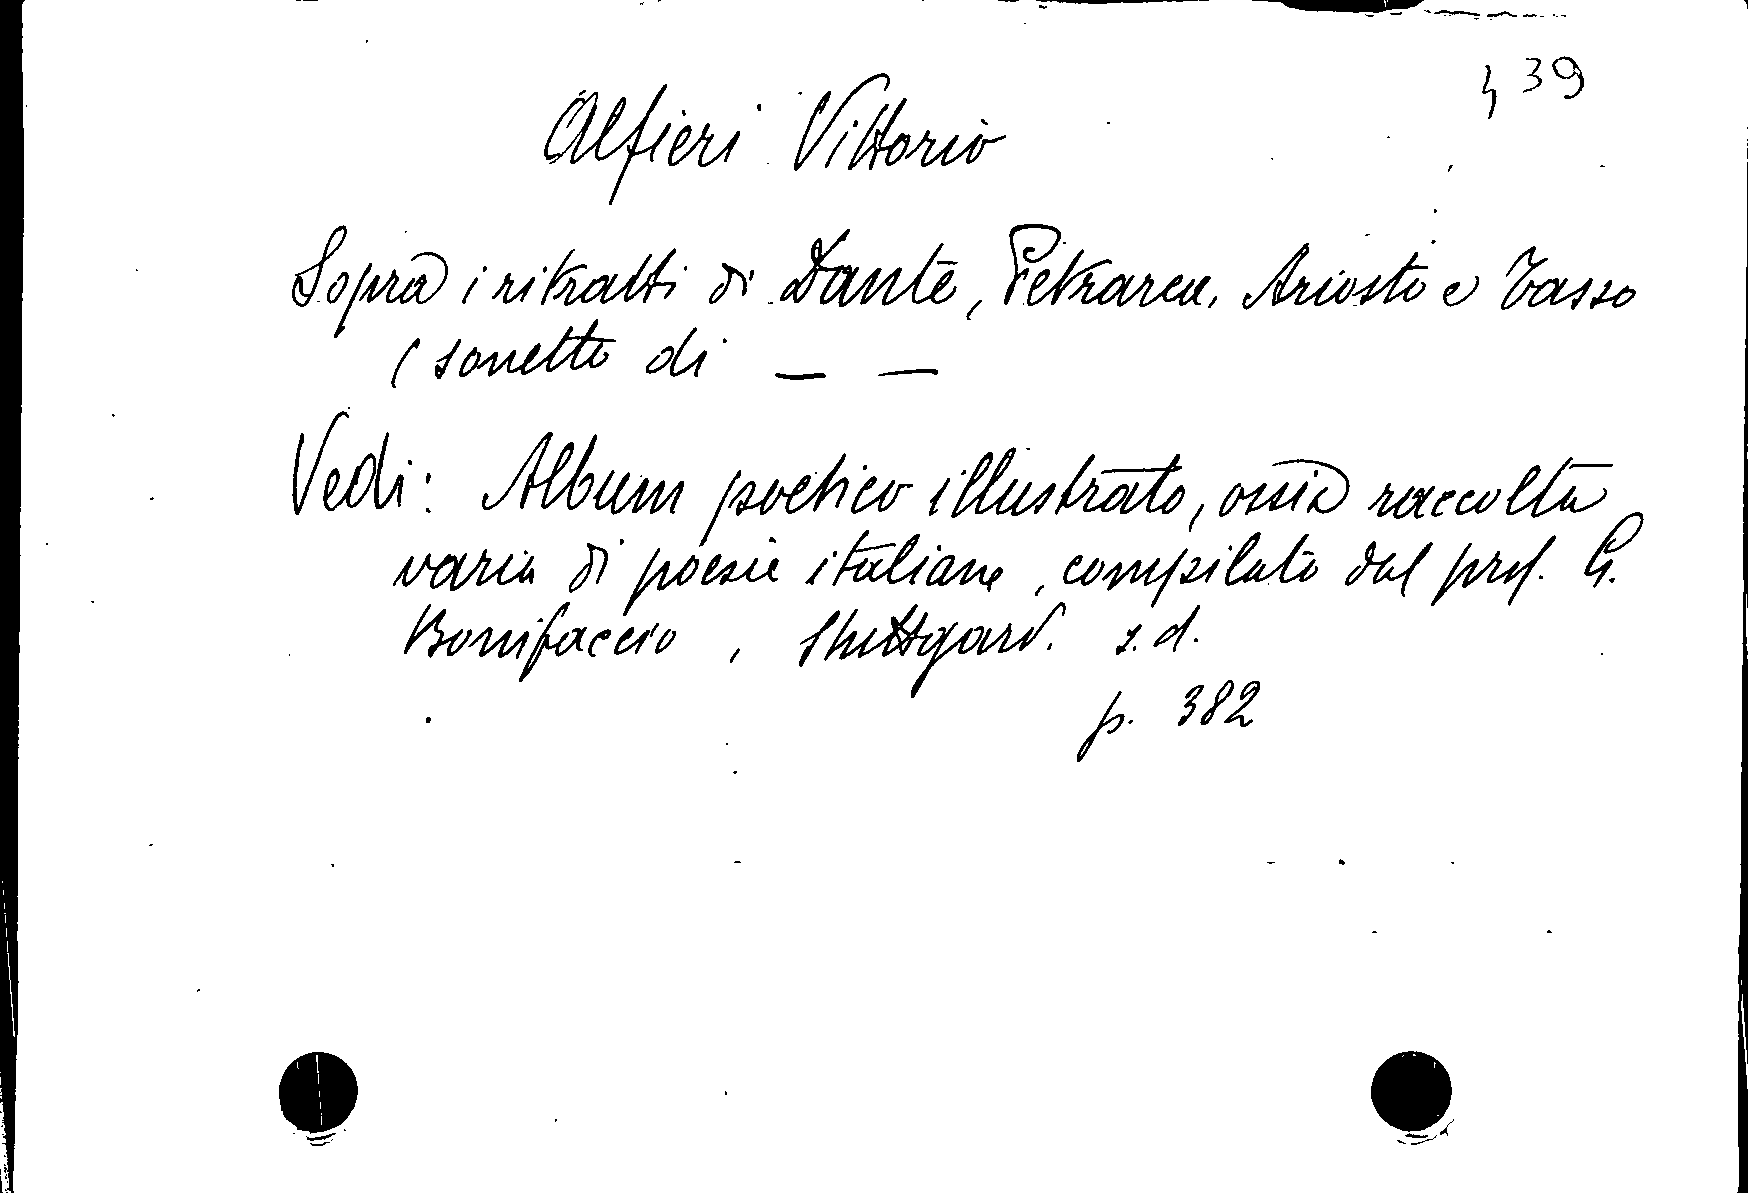 439
Alfieri Vittorio
Sopra i ritratti di Dante, Petrarca, Ariosto e Tasso
( sonetto di — —
Vedi: Album poetico illustrato, ossia raccolta
varia di poesie italiane, compilato dal prof. G.
Bonifaccio, Stuttgard. s.d.
p. 382